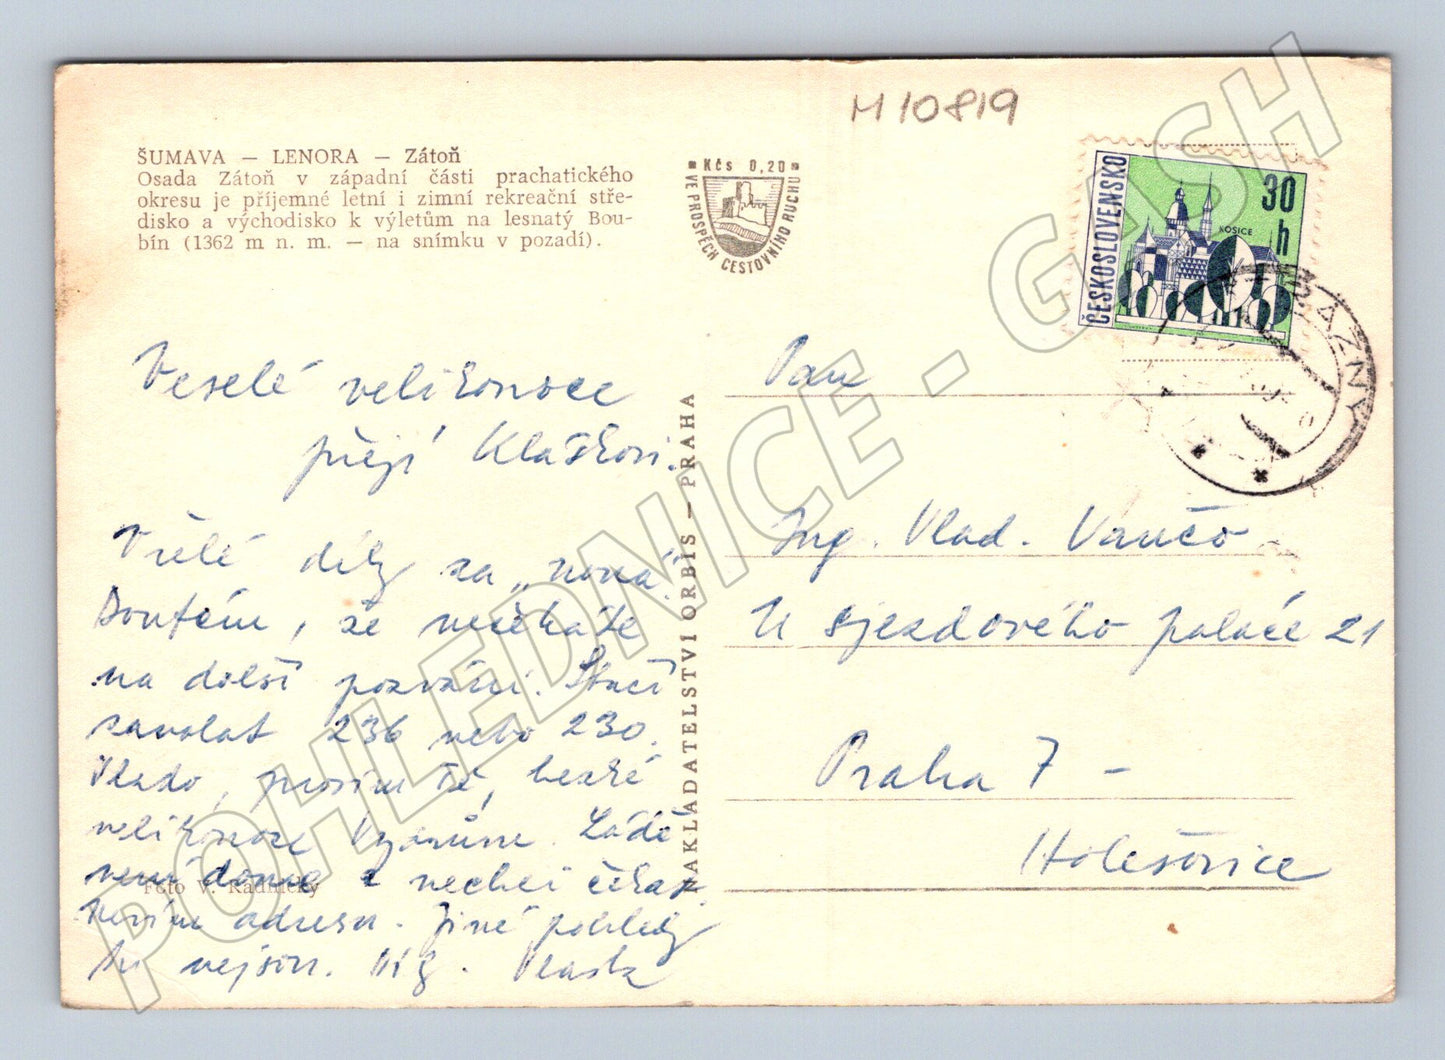 M 10819
ŠUMAVA — LENORA — Zátoň
Osada Zátoň v západní části prachatického
okresu je příjemné letní i zimní rekreační stře-
disko a východisko k výletům na lesnatý Bou-
bín (1362 m n. m. — na snímku v pozadí).
Kčs 0,20
VE PROSPĚCH CESTOVNÍHO RUCHU
ČESKOSLOVENSKO
30 h
KOŠICE
STRÁŽNÝ
Veselé velikonoce
přejí Klášt
Vřelé díky za „nová".
Doufám, že nečekáte
na další pozvání. Stačí
zavolat 236 nebo 230.
Vlado, prosím Tě, hezké
velikonoceLádě
není doma a nechci čekat.
Nevím adresu. Jiné pohledy
tu nejsou. Vlasta
Foto V. Radnický
NAKLADATELSTVÍ ORBIS — PRAHA
Pan
Ing. Vlad. Vančo
U sjezdového paláce 21
Praha 7 —
Holešovice
POHLEDNICE - GASH